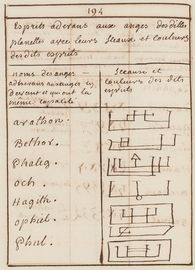 194
Esprits aderans aux anges des dittes
planettes avec leurs Sceaux et Couleurs
des dits esprits
noms des anges
adherans aux anges cy
devant et qui ont la
même capalité
Sceaux et
Couleurs des dits
esprits
arathon.
Bethor.
Phaleg.
Och.
Hagith.
ophiel.
Phul.